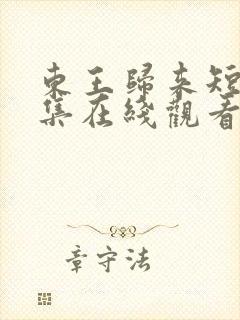 東王歸來短
集在綫觀看
章守法